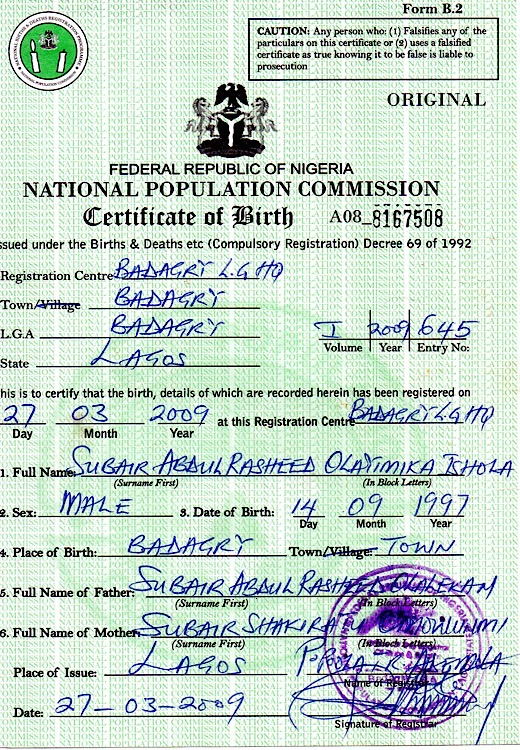 Form B.2
CAUTION: Any person who: (1) Falsifies any of the
particulars on this certificate or (2) uses a falsified
certificate as true knowing it to be false is liable to
prosecution
ORIGINAL
FEDERAL REPUBLIC OF NIGERIA
NATIONAL POPULATION COMMISSION
Certificate of Birth A08_8167508
ssued under the Births & Deaths etc (Compulsory Registration) Decree 69 of 1992
Registration Centre BADAGRY L.G HQ
Town/Village BADAGRY
L.G.A BADAGRY I 2009 645
Volume Year Entry No:
State LAGOS
his is to certify that the birth, details of which are recorded herein has been registered on
27 03 2009 at this Registration Centre BADAGRY L.G HQ
Day Month Year
1. Full Name: SUBAIR ABDUL RASHEED OLAYIMIKA ISHOLA
(Surname First) (In Block Letters)
2. Sex: MALE 3. Date of Birth: 14 09 1997
Day Month Year
4. Place of Birth: BADAGRY Town/Village: TOWN
5. Full Name of Father: SUBAIR ABDUL RASHEED
(Surname First) (In Block Letters)
6. Full Name of Mother: SUBAIR SHAKIRA
(Surname First) (In Block Letters)
Place of Issue: LAGOS
Name of Registrar
Date: 27-03-2009
Signature of Registrar